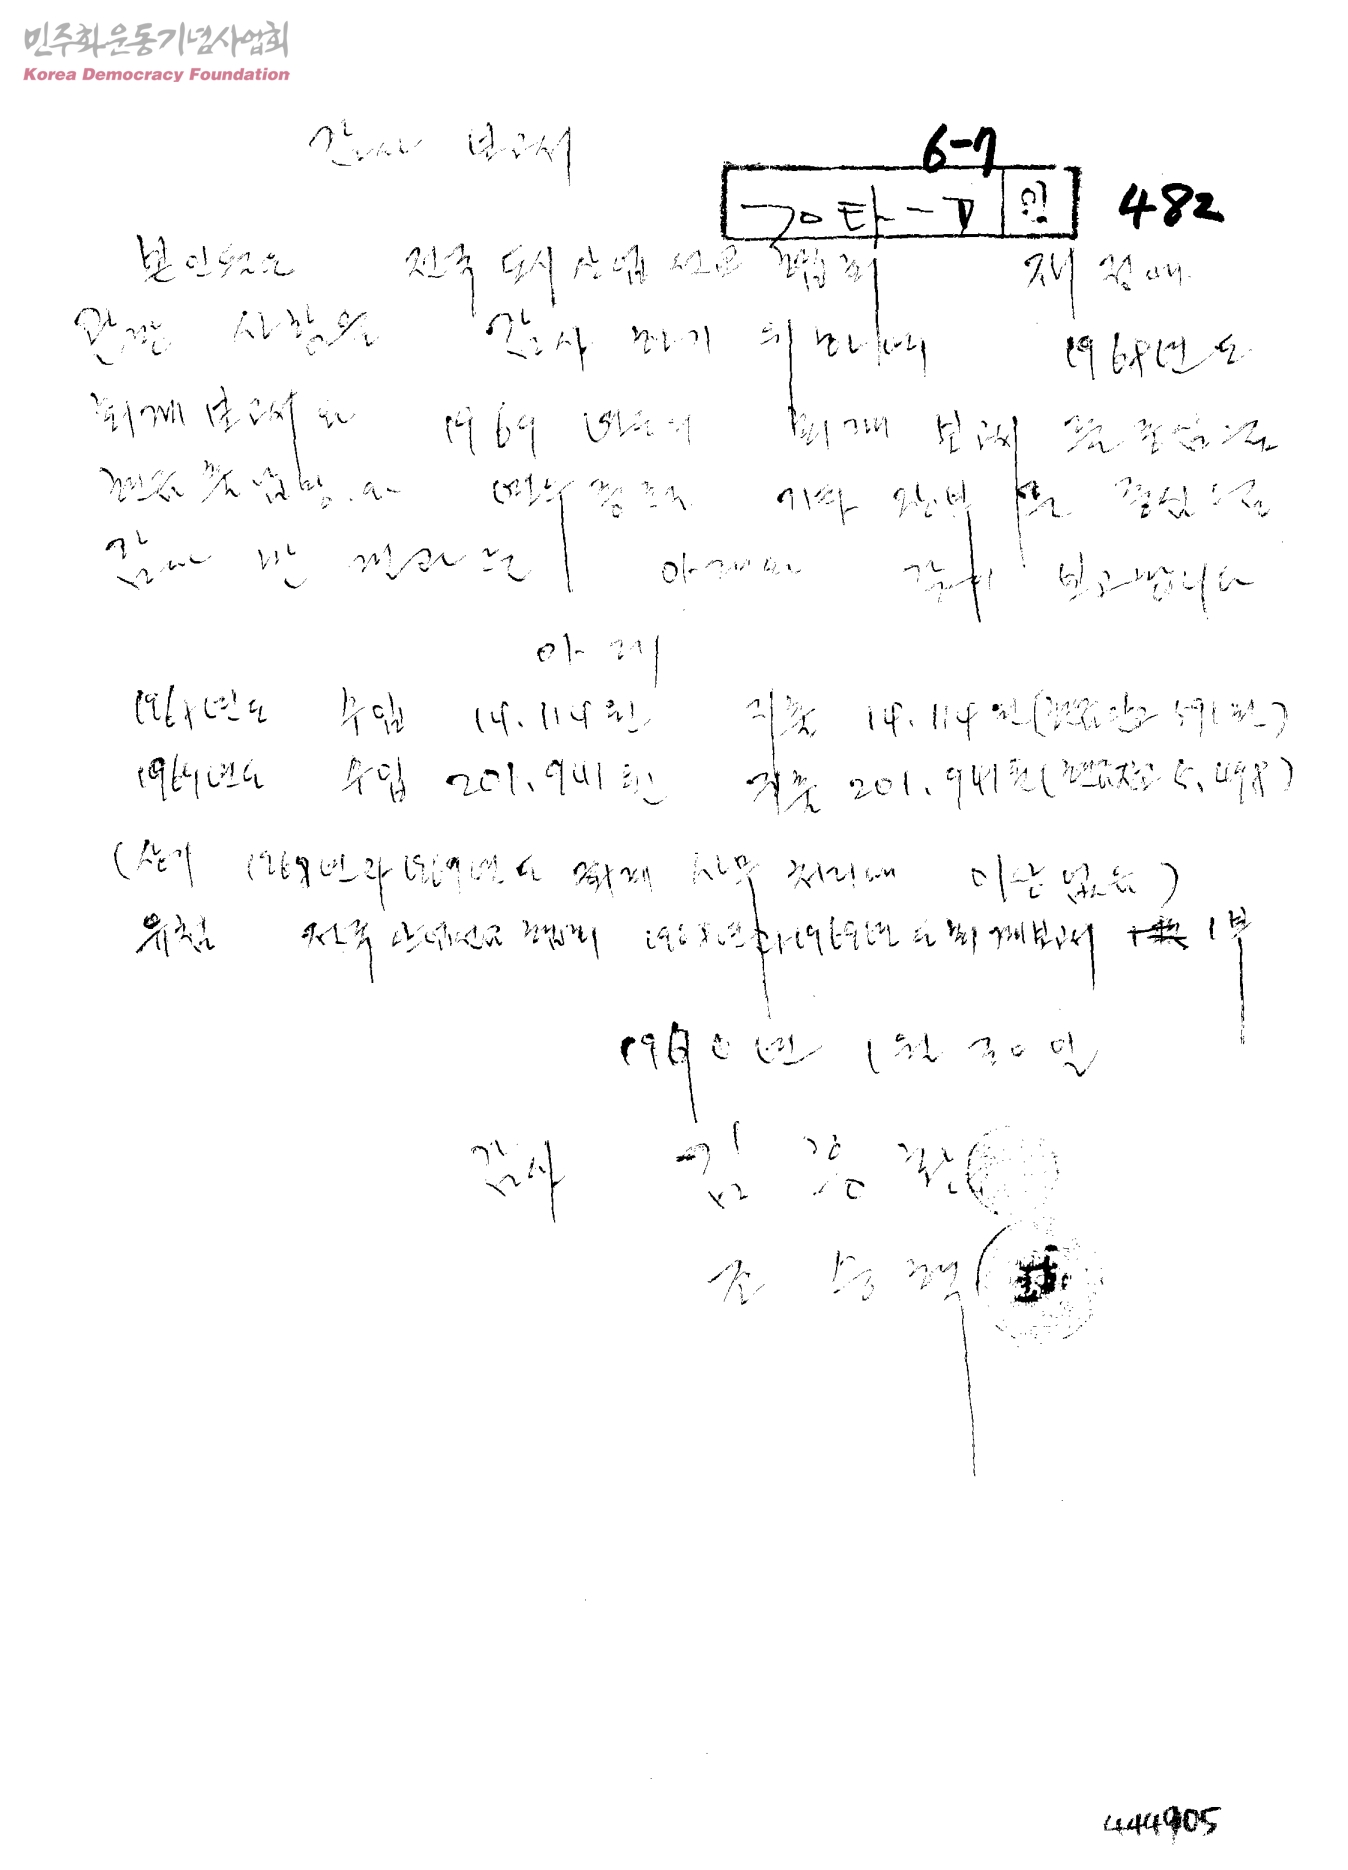 민주화운동기념사업회
Korea Democracy Foundation
감사 보고서
6-7
인
482
본인들은 전국 도시산업선교 협의회 재정에
관한 사항을 감사 하기 위하여 1968년도
회계보고서와 1969년도의 회계 보고서를 중심으로
기타 장부를 중심으로
감사 한 결과는 아래와 같이 보고합니다
아 래
1968년도 수입 14.114원 지출 14.114원(현금잔고 591원)
1969년도 수입 201.941원 지출 201.941원(현금잔고 5.498)
(상기 1968년과 1969년도 회계 사무 처리에 이상 없음)
유첨 전국산업선교협의회 1968년과 1969년도 회계보고서 1부
년 1월 30일
감사 김
조 승 혁
444905